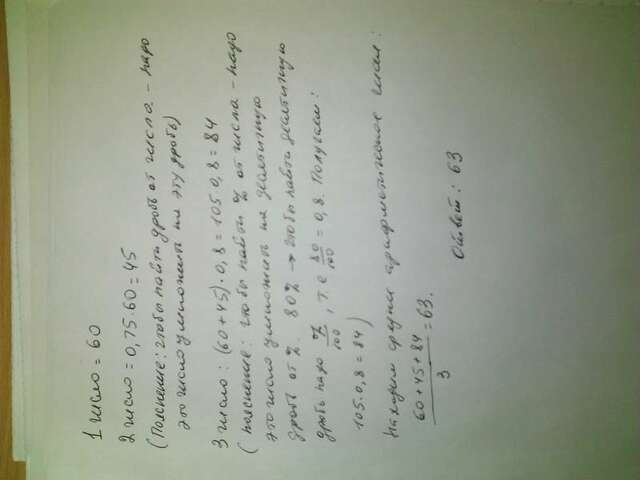 1 число = 60
2 число = 0,75·60 = 45
(Пояснение: чтобы найти дробь от числа – надо
это число умножить на эту дробь)
3 число: (60+45)·0,8 = 105·0,8 = 84
(пояснение: чтобы найти % от числа – надо
это число умножить на десятичную
дробь от %. 80% → чтобы найти десятичную
дробь надо %/100, т.е 80/100 = 0,8. Получаем:
105·0,8 = 84)
Находим среднее арифметическое чисел:
60+45+84/3 = 63.
Ответ: 63